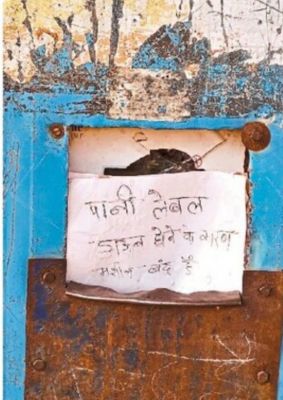 पानी लेबल
डाऊन होने के कारण
मशीन बंद है